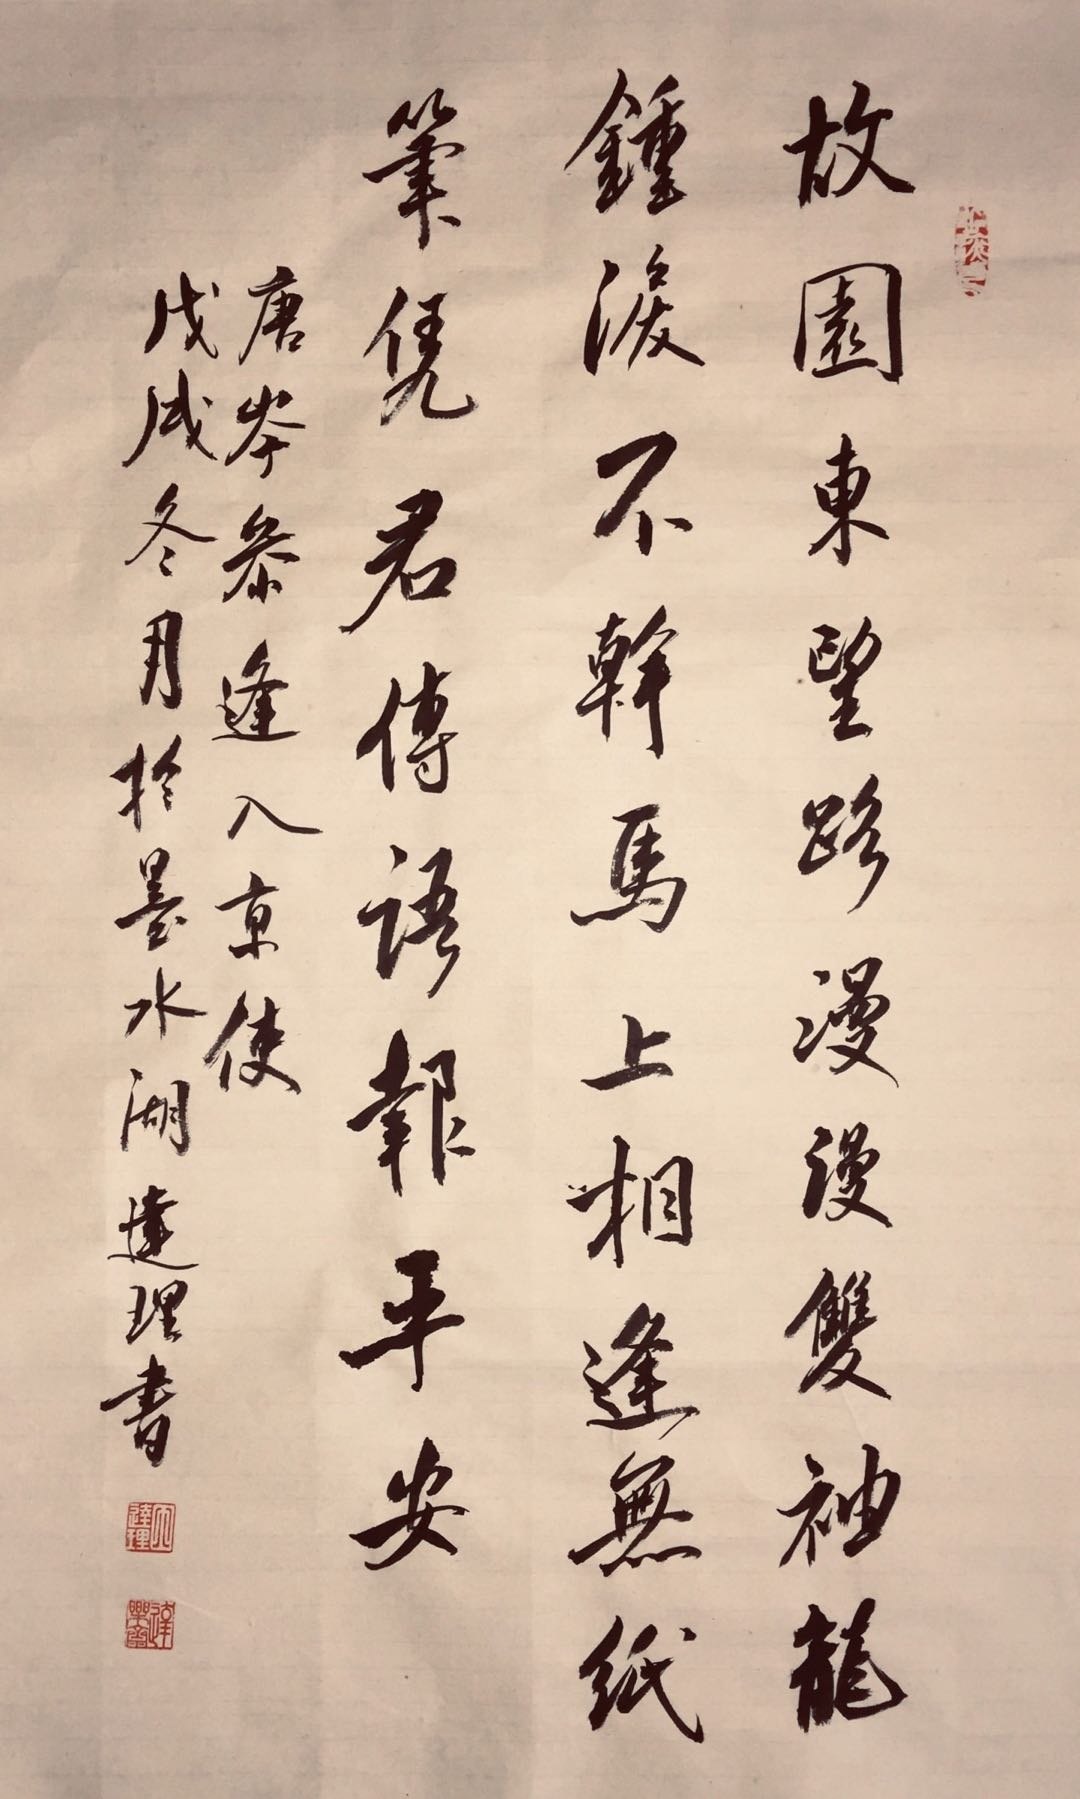 故園東望路漫漫雙袖龍
鍾淚不幹馬上相逢無紙
筆凭君傳語報平安
唐岑参逢入京使
戊戌冬月於墨水湖達理書